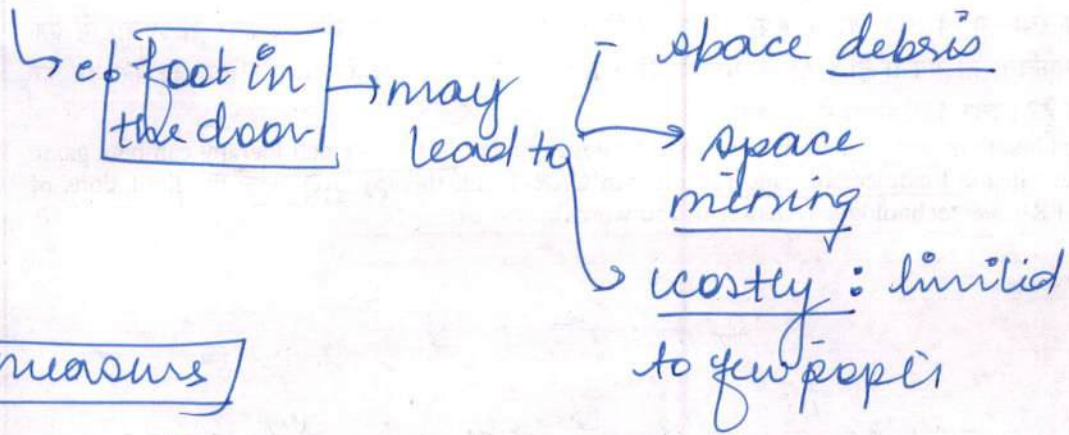 foot in → may
the door
lead to
- space debris
→ space
mining
→ costly : limited
to few
measures